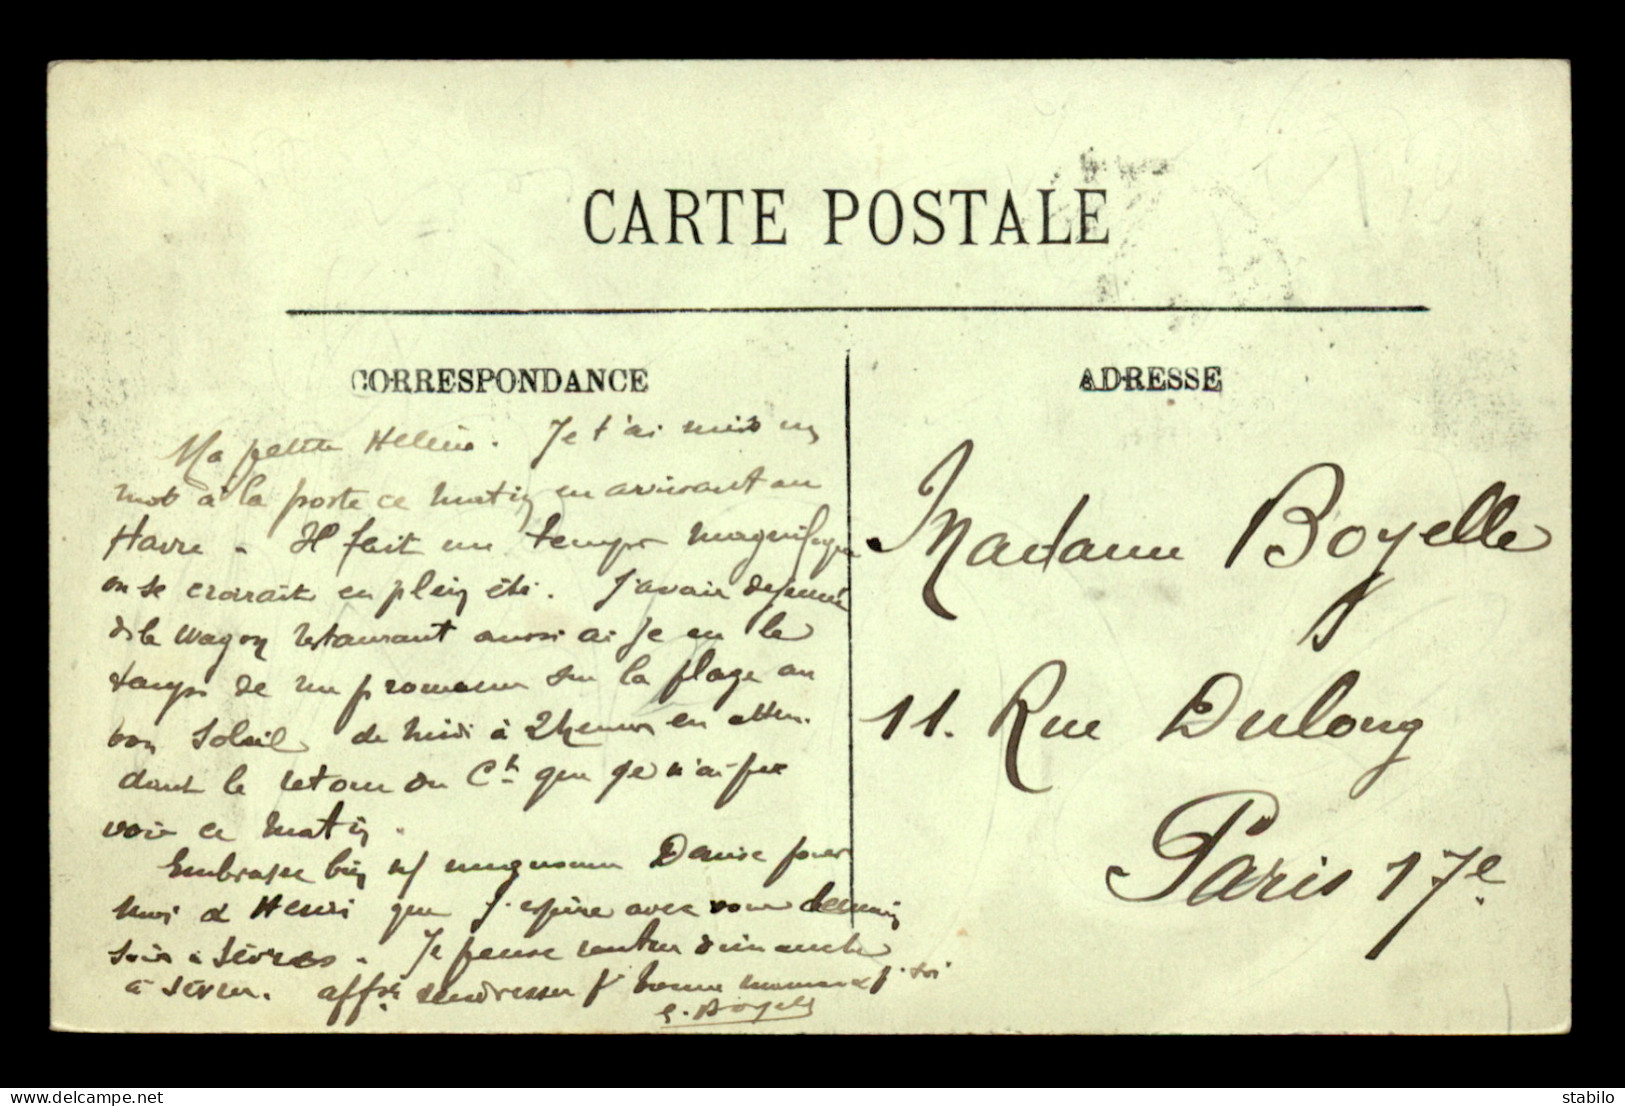 CARTE POSTALE
CORRESPONDANCE
ADRESSE
Ma petite Hélène. Je t'ai mis un
mot à la poste ce matin en arrivant au
Havre. Il fait un temps magnifique
on se croirait en plein été. J'avais déjeuné
ds le wagon restaurant aussi ai je eu le
temps de me promener sur la plage au
bon soleil de midi à 2 heures en atten-
dant le retour du Ct que je n'ai pu
voir ce matin.
Embrasse bien n/ mignonne Denise pour
moi & Henri que j'espère avec vous demain
soir à Sèvres. Je pense rentrer dimanche
à Sèvres. affse tendresses p/ bonne maman & p. toi
Boyelle
Madame Boyelle
11. Rue Dulong
Paris 17e.
delcampe.net
stabilo